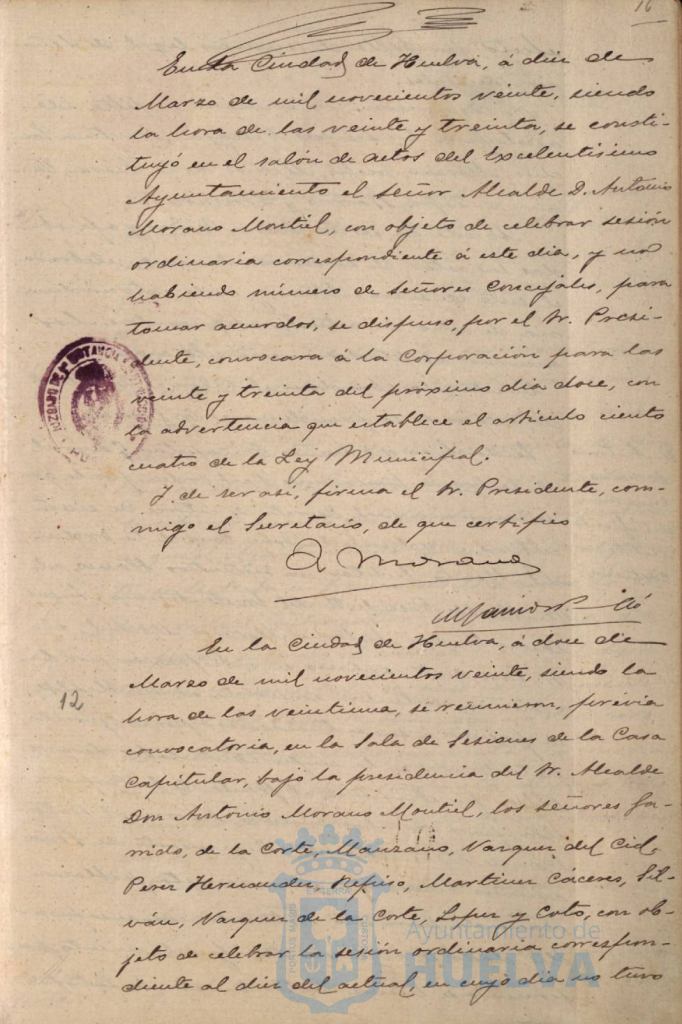 16
En la Ciudad de Huelva, á diez de
Marzo de mil novecientos veinte, siendo
la hora de las veinte y treinta, se consti-
tuyó en el salón de actos del Excelentisimo
Ayuntamiento el señor Alcalde D. Antonio
Morano Montiel, con objeto de celebrar sesión
ordinaria correspondiente á este dia, y no
habiendo número de señores Concejales, para
tomar acuerdos, se dispuso, por el Sr. Presi-
dente, convocara á la Corporación para las
veinte y treinta del próximo dia doce, con
la advertencia que establece el articulo ciento
cuatro de la Ley Municipal.
Y de ser asi, firma el Sr. Presidente, con-
migo el Secretario, de que certifico
A Morano
JUZGADO DE 1ª INSTANCIA
En la Ciudad de Huelva, á doce de
Marzo de mil novecientos veinte, siendo la
12
hora de las veintiuna, se reunieron, previa
convocatoria, en la Sala de Sesiones de la Casa
Capitular, bajo la presidencia del Sr. Alcalde
Don Antonio Morano Montiel, los señores Ga-
rrido, de la Corte, Manzano, Vazquez del Cid,
Perez Hernandez, Repiso, Martinez Cáceres, Sil-
ván, Vazquez de la Corte, Lopez y Coto, con ob-
jeto de celebrar la sesión ordinaria correspon-
diente al diez del actual, en cuyo dia no tuvo
Ayuntamiento de
HUELVA